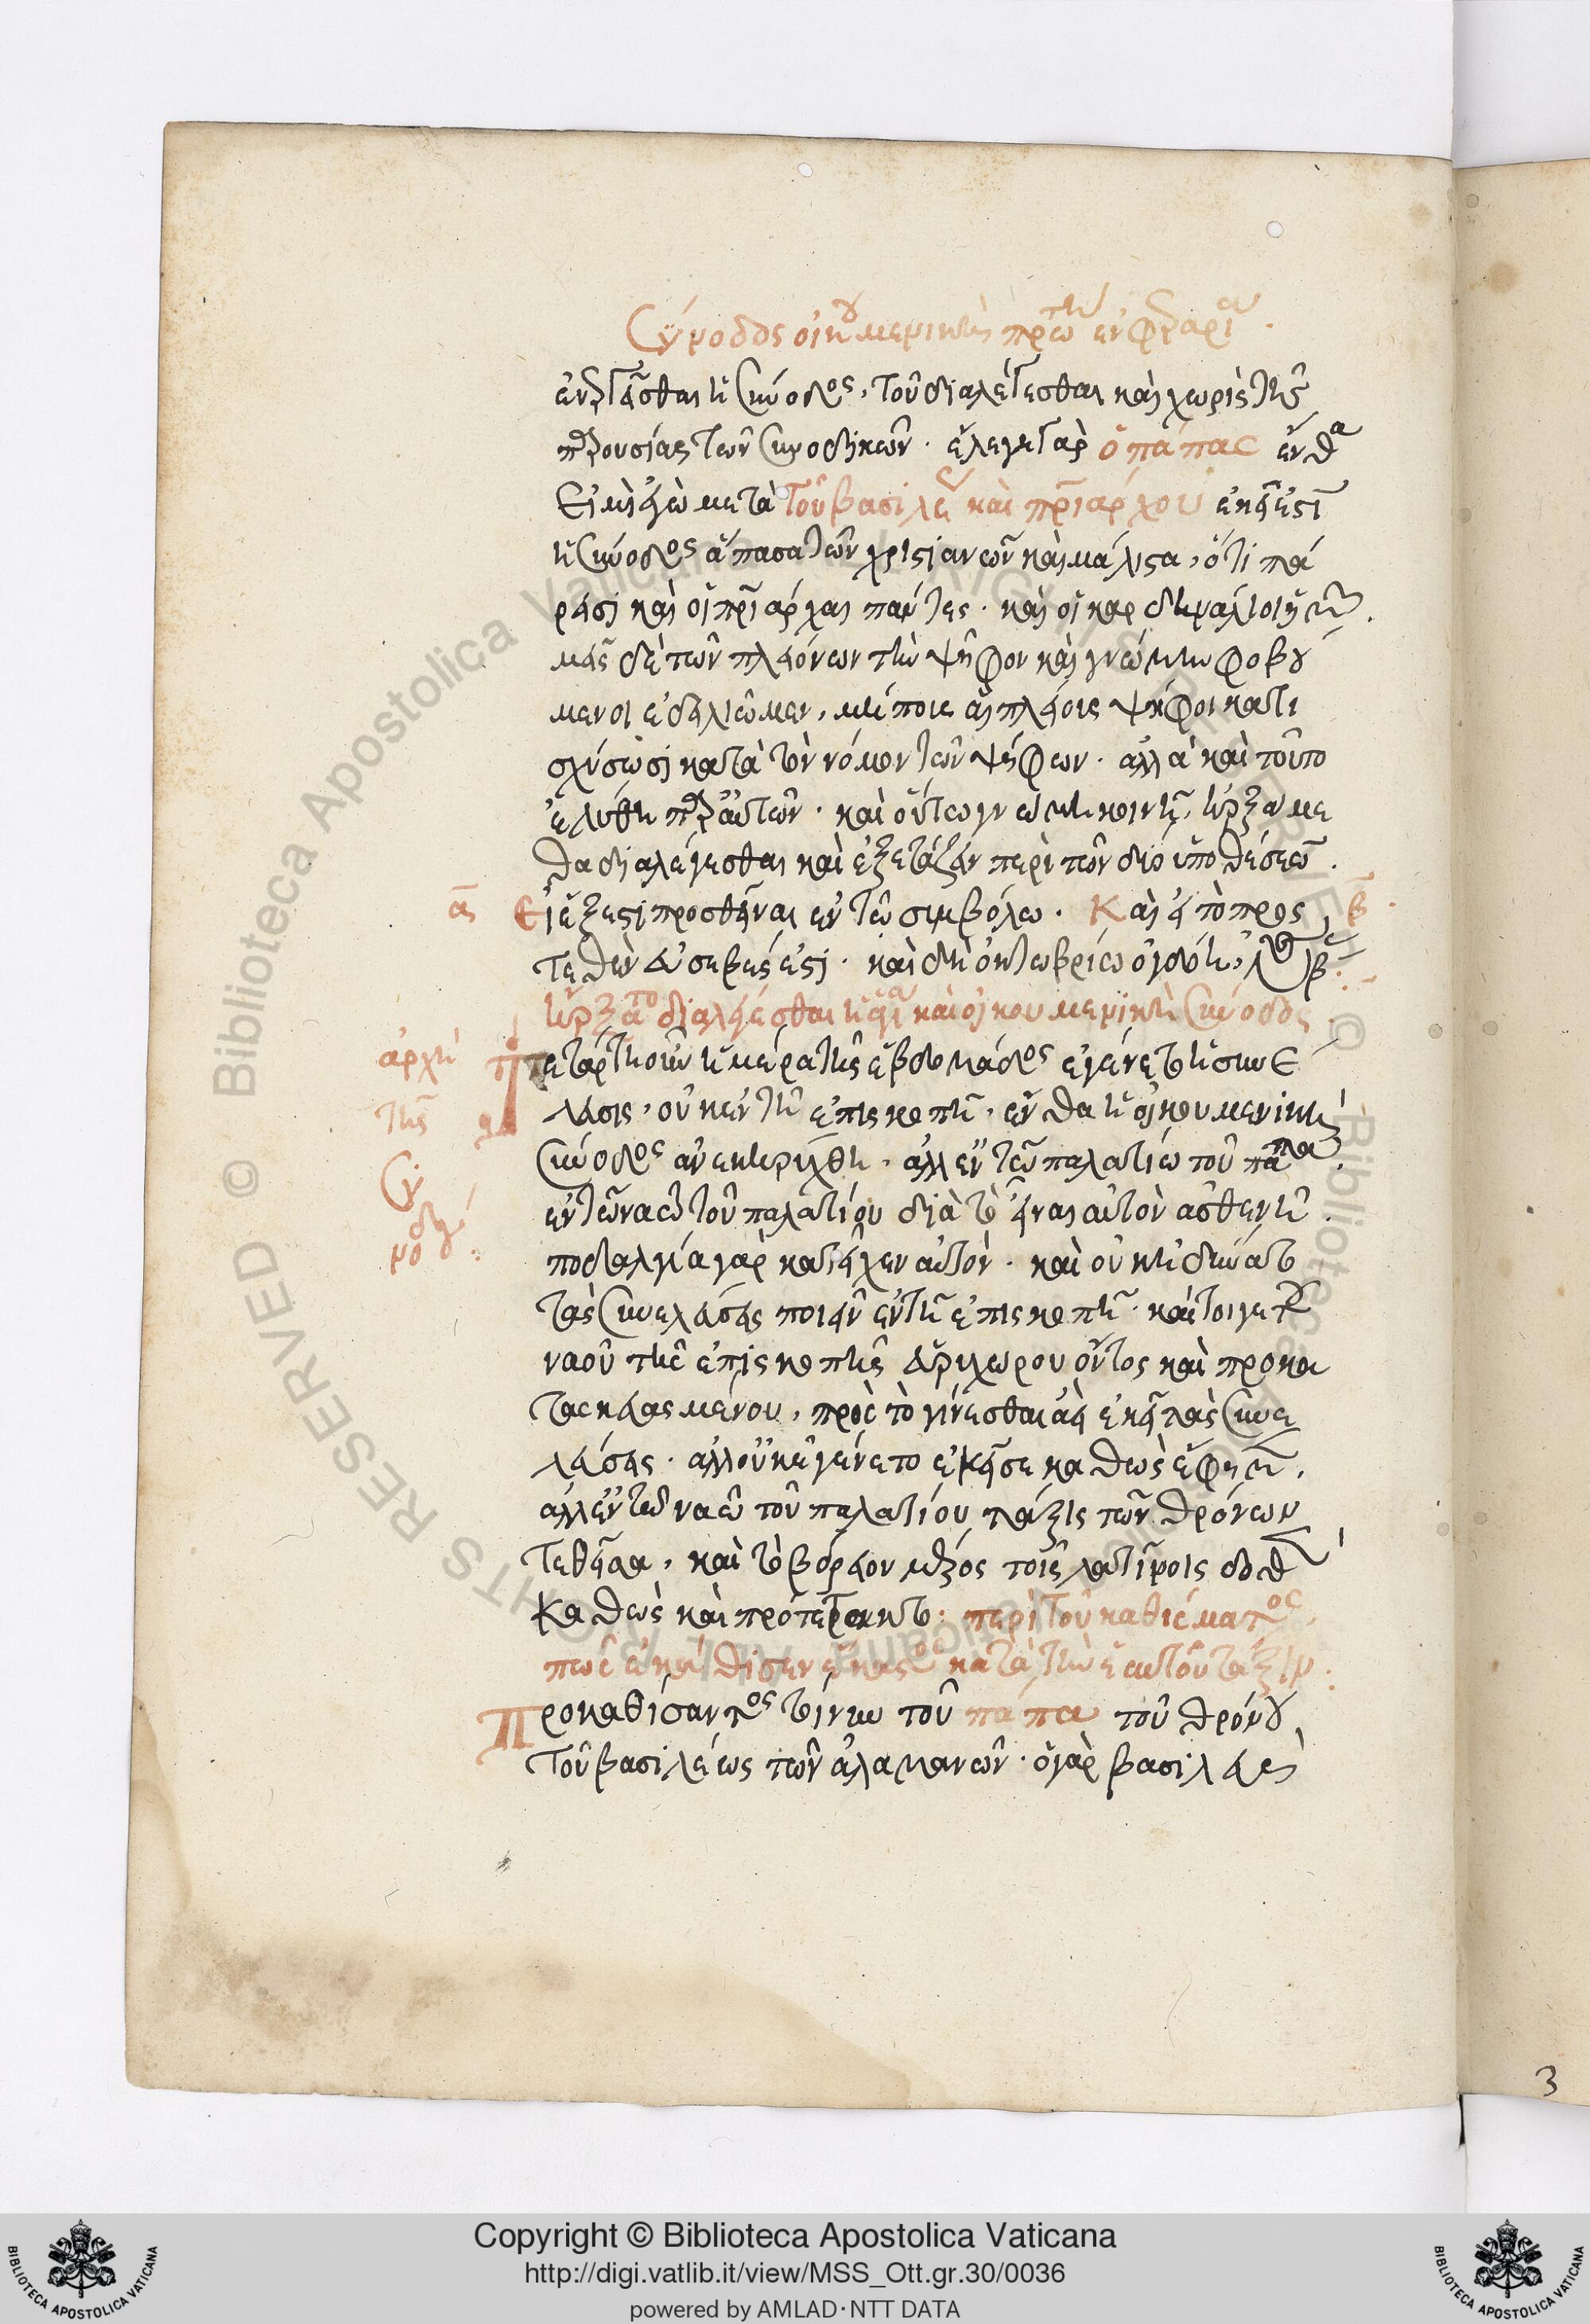 Σύνοδος οἰκουμενικὴ πρώτη ἐν Φεραρία.
ἐνεργεῖσθαι ἡ σύνοδος, τοῦ διαλέγεσθαι καὶ χωρὶς τῆς
παρουσίας τῶν συνοδικῶν. ἔλεγε γὰρ ὁ πάπας ἔνθα
εἰμὶ ἐγὼ μετὰ τοῦ βασιλέως καὶ πατριάρχου ἐκεῖ ἐστι
ἡ σύνοδος ἅπασα τῶν χριστιανῶν καὶ μάλιστα, ὅτι πά
ρεισι καὶ οἱ πατριάρχαι πάντες. καὶ οἱ καρδηνάλιοι ἡμῶν.
ἡμεῖς δὲ τῶν πλειόνων τὴν ψῆφον καὶ γνώμην φοβού
μενοι ἐδειλιῶμεν, μήποτε αἱ πλείοις ψῆφοι κατι
σχύσωσι κατὰ τὸν νόμον τῶν ψήφων. ἀλλὰ καὶ τοῦτο
ἐλύθη παρ' αὐτῶν. καὶ οὕτω γνώμῃ κοινῇ, ἠρξάμε
θα διαλέγεσθαι καὶ ἐξετάζειν περὶ τῶν δύο ὑποθέσεων.
α Εἰ ἔξεστι προσθεῖναι ἐν τῷ συμβόλῳ. Καὶ εἰ τὸ προς β
τεθὲν εὐσεβές ἐστι. καὶ δὴ ὀκτωβρίῳ ὀγδόῃ,
ἤρξατο διαλέγεσθαι ἡ ἁγία καὶ οἰκουμενικὴ σύνοδος.
ἀρχὴ τῆς συνόδου
τετάρτη οὖν ἡμέρα τῆς ἑβδομάδος ἐγένετο ἡ συνέ
λευσις, οὐκ ἐν τῇ ἐπισκοπῇ, ἔνθα ἡ οἰκουμενικὴ
σύνοδος ἀνεκηρύχθη, ἀλλ' ἐν τῷ παλατίῳ τοῦ πάπα.
ἐν τῷ ναῷ τοῦ παλατίου διὰ τὸ εἶναι αὐτὸν ἀσθενῆ.
ποδαλγία γὰρ κατεῖχεν αὐτόν. καὶ οὐκ ἠδύνατο
τὰς συνελεύσεις ποιεῖν ἐν τῇ ἐπισκοπῇ. καίτοιγε τοῦ
ναοῦ τῆς ἐπισκοπῆς εὐρυχώρου ὄντος καὶ προκα
τασκευασμένου, πρὸς τὸ γίνεσθαι ἀεὶ ἐκεῖ τὰς συνε
λεύσεις. ἀλλ' οὐκ ἐγένετο ἐκεῖσε καθὼς ἔφημεν,
ἀλλ' ἐν τῷ ναῷ τοῦ παλατίου τάξις τῶν θρόνων
τεθεῖσα, καὶ τὸ βόρειον μέρος τοῖς λατίνοις ἐδόθη
καθὼς καὶ πρότερον: περὶ τοῦ καθίσματος
πῶς ἐκάθισεν ἕκαστος κατὰ τὴν ἑαυτοῦ τάξιν:
Προκαθίσαντος τοίνυν τοῦ πάπα τοῦ θρόνου
τοῦ βασιλέως τῶν ἀλαμανῶν. ὁ γὰρ βασιλεὺς
3
Copyright © Biblioteca Apostolica Vaticana
http://digi.vatlib.it/view/MSS_Ott.gr.30/0036
powered by AMLAD·NTT DATA